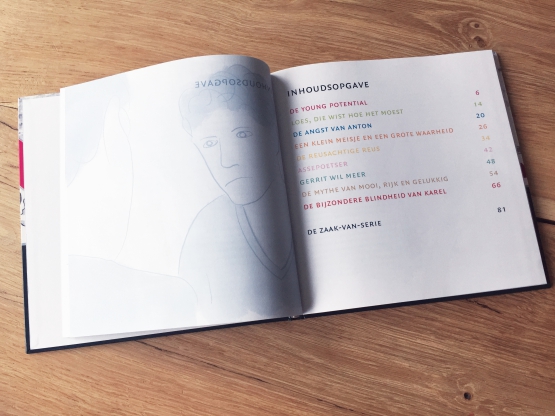 INHOUDSOPGAVE
DE YOUNG POTENTIAL 6
LOES, DIE WIST HOE HET MOEST 14
DE ANGST VAN ANTON 20
EEN KLEIN MEISJE EN EEN GROTE WAARHEID 26
DE REUSACHTIGE REUS 34
ASSEPOETSER 42
GERRIT WIL MEER 48
DE MYTHE VAN MOOI, RIJK EN GELUKKIG 54
DE BIJZONDERE BLINDHEID VAN KAREL 66
DE ZAAK-VAN-SERIE 81